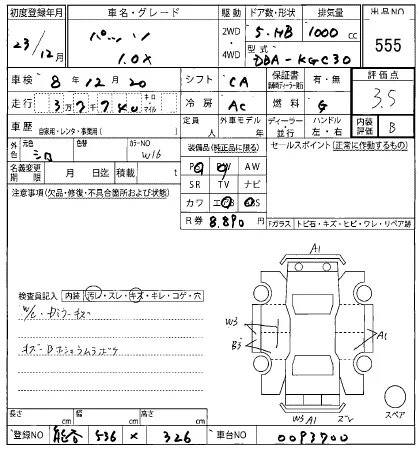 初度登録年月 車名・グレード 駆動 ドア数・形状 排気量 出品NO
23/12月 パッソ 1.0X 2WD・4WD 5・HB 1000cc 555
型式 DBA-KGC30
車検 8年12月20 シフト CA 保証書 有・無 評価点
走行 3万7千7 キロ・マイル 冷房 AC 燃料 G 3.5
車歴 自家用・レンタ・事業用( ) 定員 人 外車モデル 年 ディーラー・並行 ハンドル 左・右 内装評価 B
色 元色 シロ 色替 カラーNO W16 装備品(純正品に限る) セールスポイント(正常に作動するもの)
名義変更期限 月 日迄 積載 t PS PW AW
注意事項(欠品・修復・不具合箇所および状態) SR TV ナビ
カワ エアB ABS
R券 8,890円 Fガラス トビ石・キズ・ヒビ・ワレ・リペア跡
A1
検査員記入 内装 汚レ・スレ・キズ・キレ・コゲ・穴
W3 B3 A1
スペア
長さ cm 幅 cm 高さ cm W3 A1
登録NO 536 × 326 車台NO 0093700